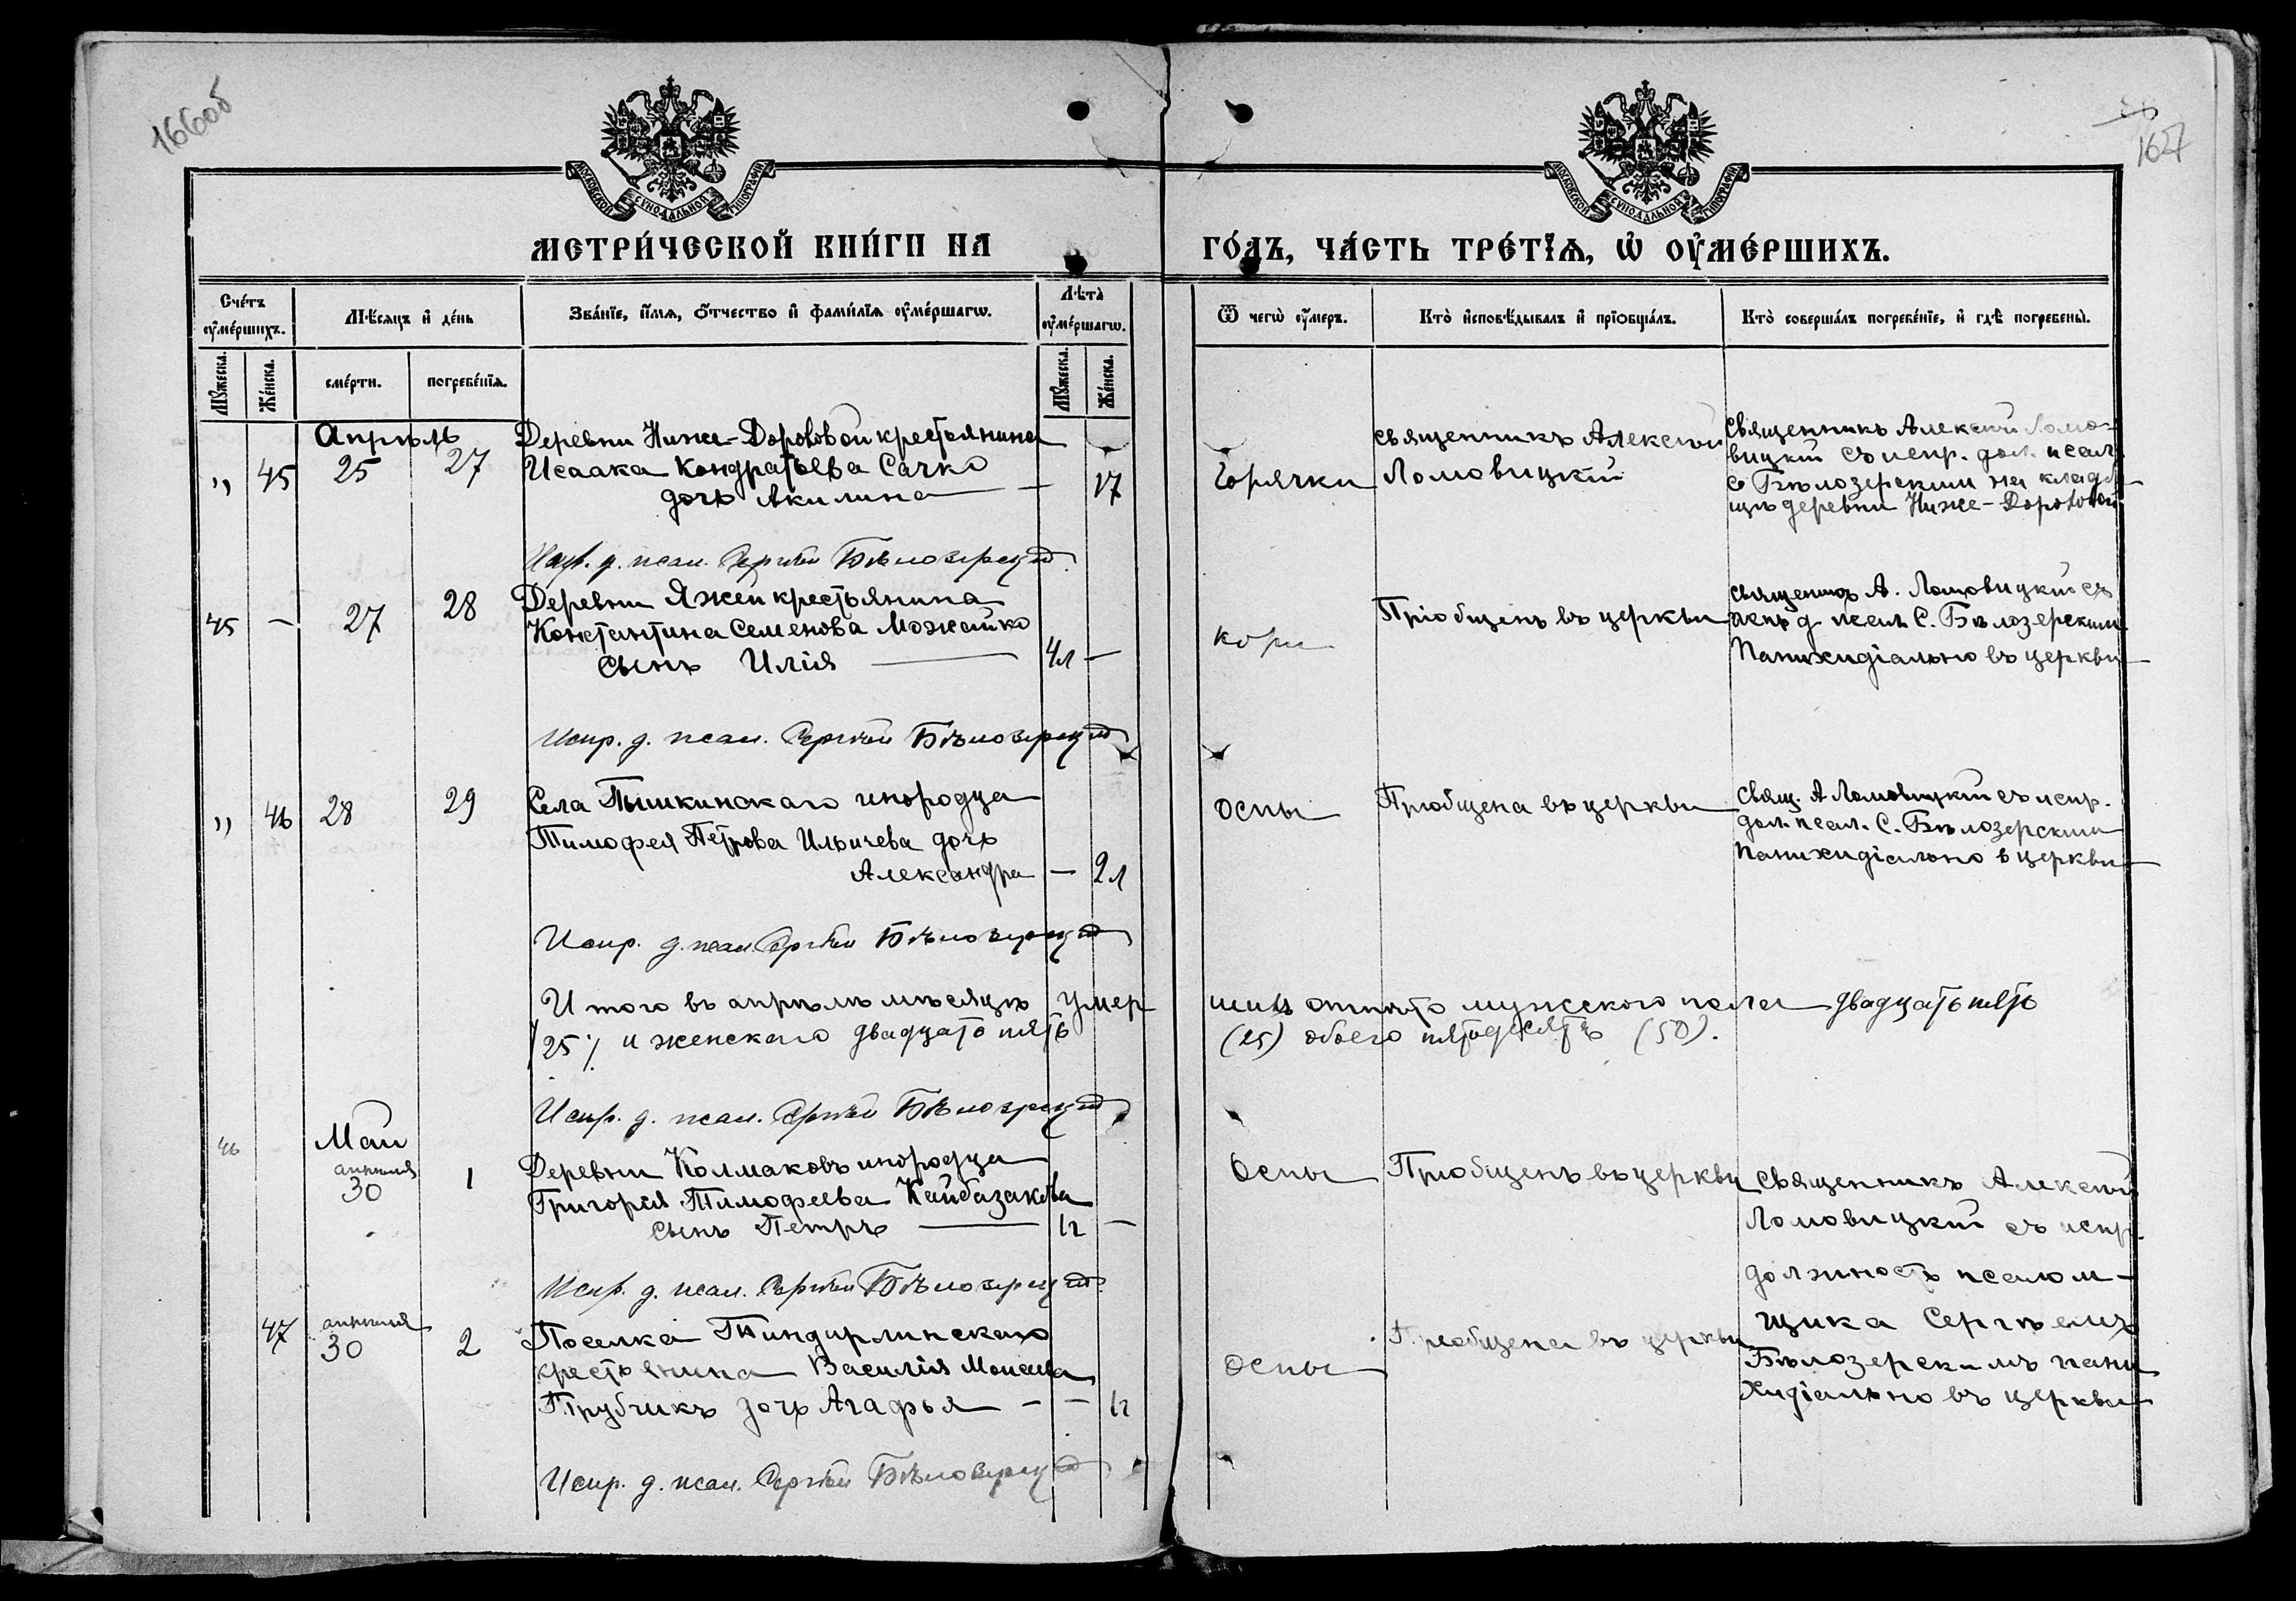 166об
167
МОСКОВСКОЙ СѴНОДАЛЬНОЙ ТИПОГРАФІИ
МОСКОВСКОЙ СѴНОДАЛЬНОЙ ТИПОГРАФІИ
МЕТРИ́ЧЕСКОЙ КНИ́ГИ НА ГО́ДЪ, ЧА́СТЬ ТРЕ́ТІѦ, Ѽ ОУ҆МЕ́РШИХЪ.
Сче́тъ оу҆ме́ршихъ.
Мꙋжеска.
Же́нска.
Мѣ́сяцъ и҆ де́нь
сме́рти.
погребе́нїѧ.
Зва́нїе, и҆́мѧ, ѻ҆́тчество и҆ фами́лїѧ оу҆ме́ршагѡ.
Лѣ̀та оу҆ме́ршагѡ.
Мꙋжеска.
Же́нска.
Ѿ чегѡ̀ оу҆́меръ.
Кто̀ и҆сповѣ́дывалъ и҆ прїѻбща́лъ.
Кто̀ соверша́лъ погребе́нїе, и҆ гдѣ̀ погребены̀.
Апрѣль
" 45 25 27
Деревни Ниже-Доровой крестьянина
Исаака Кондратьева Сачко
дочь Акилина — — 17
Горячки
священникъ Алексій
Ломовицкій
священникъ Алексій Ломо-
вицкій съ испр. дол. псал.
С Бѣлозерскимъ на кладб
ищѣ деревни Ниже-Доровой
Испр. д. псал. Сергѣй Бѣлозерскій
45 — 27 28
Деревни Яжей крестьянина
Константина Семенова Можейко
сынъ Илія — 4л —
кори
Пріобщенъ въ церкви
священникъ А. Ломовицкій съ
исп д псал С. Бѣлозерскимъ
Панихидіально въ церкви
Испр. д. псал. Сергѣй Бѣлозерскій
" 46 28 29
Села Тышкинскаго инородца
Тимофея Петрова Ильичева дочь
Александра — 2л
Оспы
Пріобщена въ церкви
свящ. А Ломовицкій съ испр.
дол. псал. С. Бѣлозерскимъ
Панихидіально в церкви
Испр. д. псал. Сергѣй Бѣлозерскій
Итого въ апрѣлѣ мѣсяцѣ умер
шихъ отпѣто мужского пола двадцать пять
/25/ и женскаго двадцать пять
(25) обоего пятьдесятъ (50).
Испр. д. псал. Сергѣй Бѣлозерскій
Май
46 апрѣля 30 1
Деревни Колмаковъ инородца
Григорія Тимофеева Кайбазакова
сынъ Петръ — 1г —
Оспы
Пріобщенъ въ церкви
Священникъ Алексій
Ломовицкій съ испр.
должность псалом-
щика Сергѣемъ
Бѣлозерскимъ пани
хидіально въ церкви
Испр. д. псал. Сергѣй Бѣлозерскій
47 апрѣля 30 2
Поселка Тиндирлинскаго
крестьянина Василія Моисеева
Трубчикъ дочь Агафья — — 1г
Оспы
Пріобщена въ церкви
Испр. д. псал. Сергѣй Бѣлозерскій